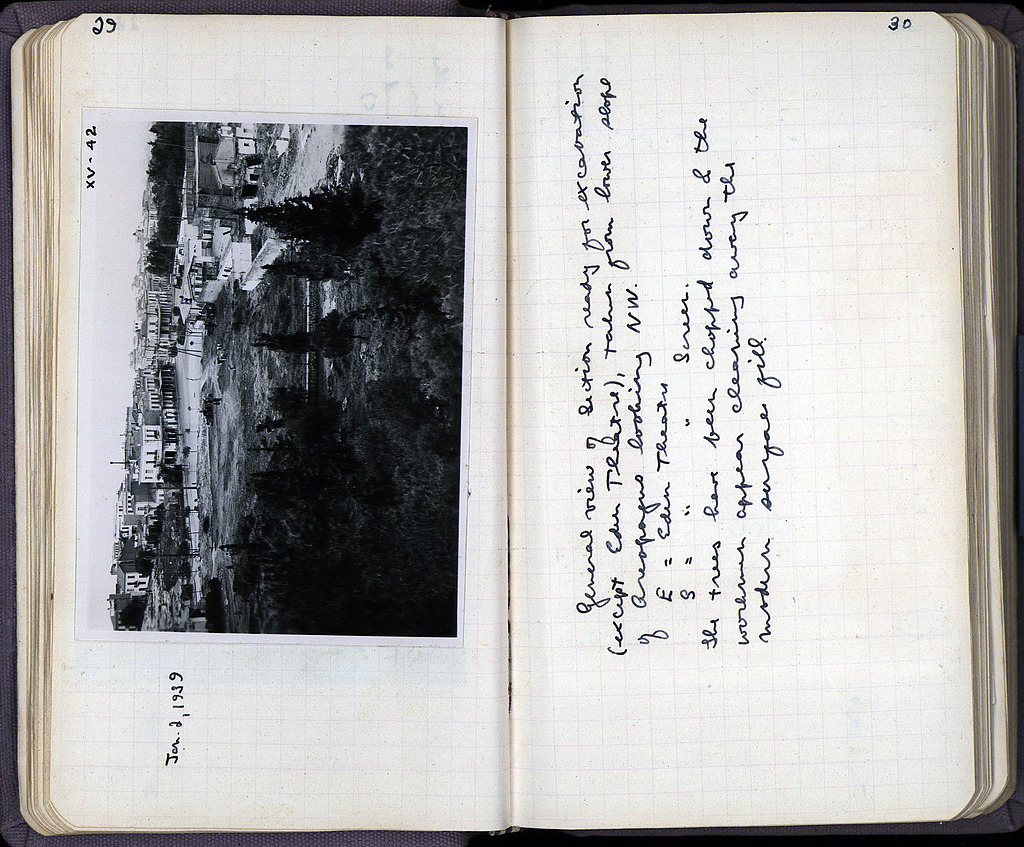 29
XV - 42
Jan. 2, 1939
30
General view of section ready for excavation
(except Eden Theatre), taken from lower slope
of Areopagus looking NW.
E = Eden Theatre
S = " " Screen.
The trees have been chopped down & the
workmen appear clearing away the
modern surface fill.